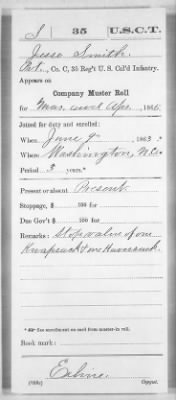 S 35 U.S.C.T.
Jesse Smith
Pvt., Co. C, 35 Reg't U. S. Col'd Infantry.
Appears on
Company Muster Roll
for Mar. and Apr., 1865.
Joined for duty and enrolled:
When June 9, 1863.*
Where Washington, N.C.
Period 3 years.*
Present or absent Present
Stoppage, $ 100 for
Due Gov't $ 100 for
Remarks: Stop value of one
Knapsack & one Haversack.
*See enrollment on card from muster-in roll.
Book mark:
Copyist.